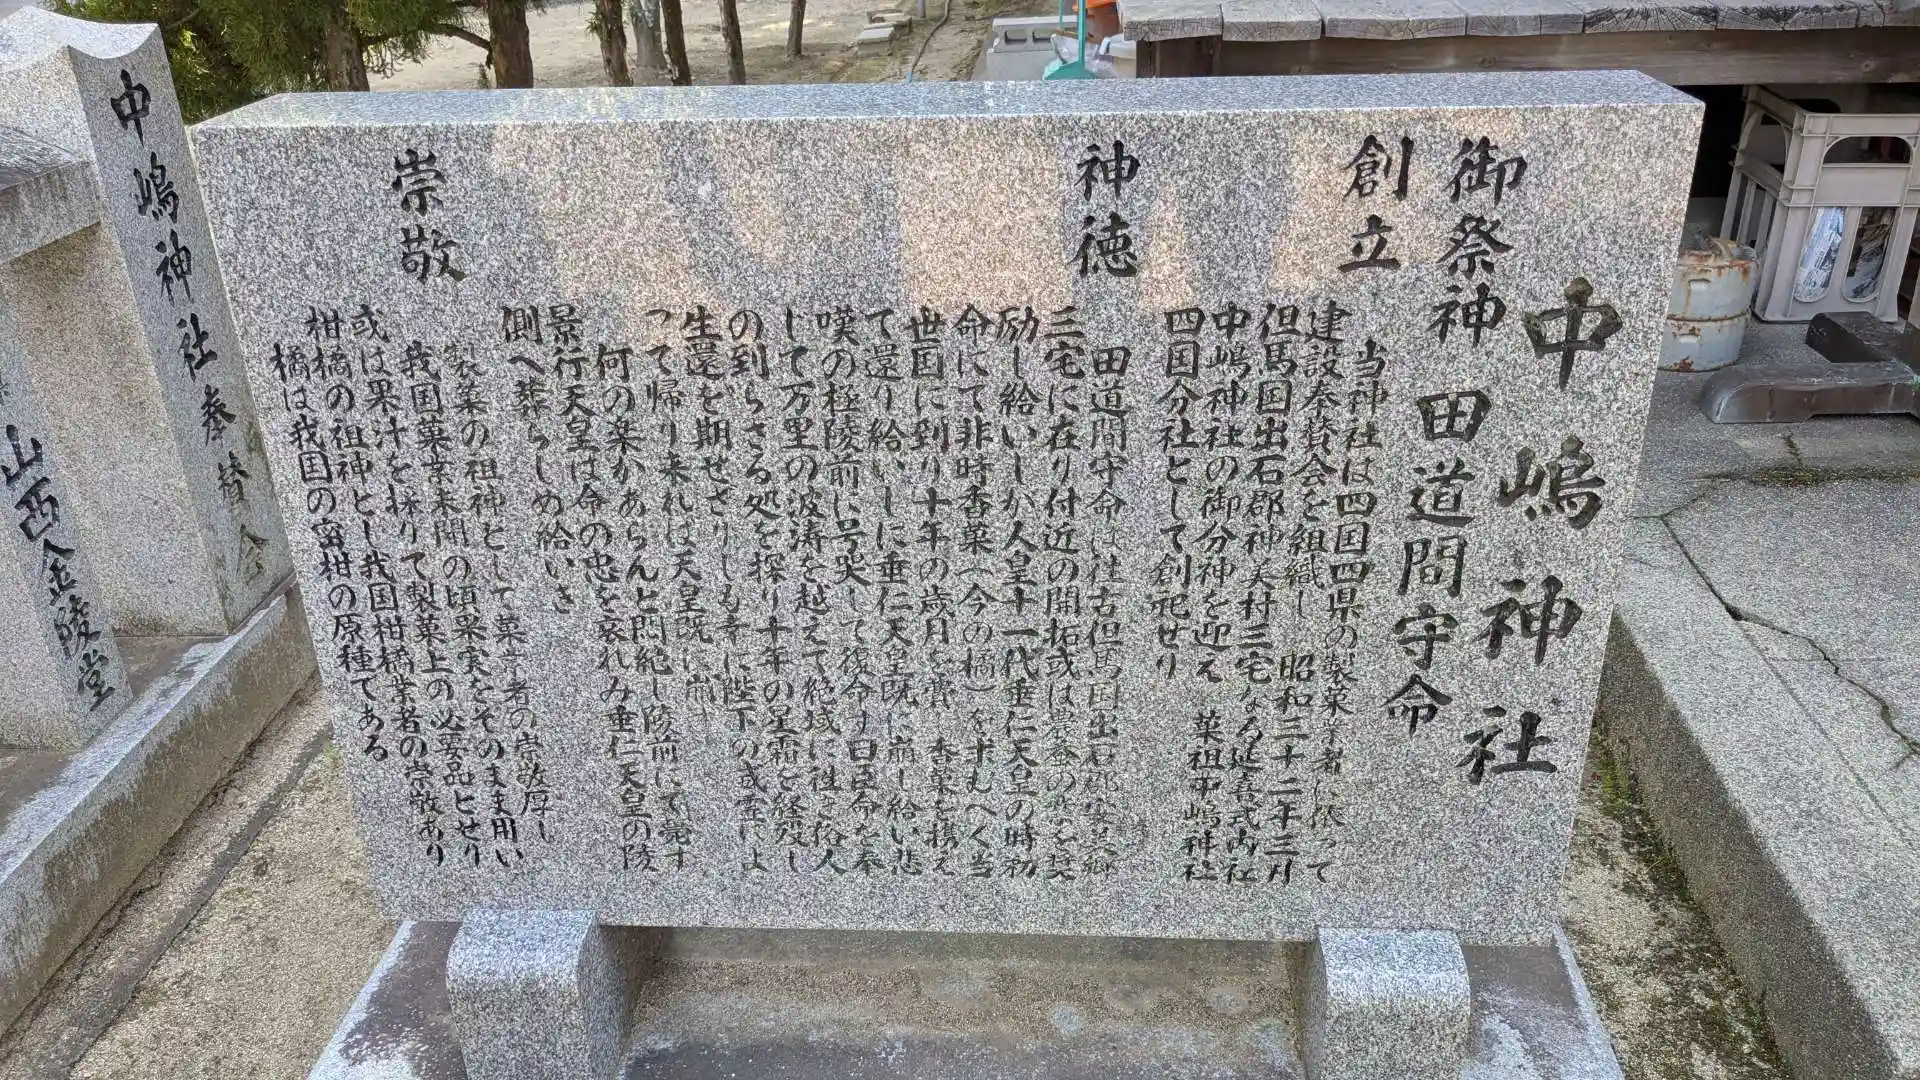 中嶋神社
御祭神 田道間守命
創立
当神社は四国四県の製菓業者に依って
建設奉賛会を組織し 昭和三十二年三月
但馬国出石郡神美村三宅なる延喜式内社
中嶋神社の御分神を迎え 菓祖中嶋神社
四国分社として創祀せり
神徳
田道間守命は往古但馬国出石郡
三宅に在り付近の開拓或は農桑の業を奨
励し給いしが人皇十一代垂仁天皇の時初
命にて非時香菓(今の橘)を求むべく当
世国に到り十年の歳月を費 香菓を携え
て還り給いしに垂仁天皇既に崩し給い悲
嘆の極陵前に号哭して復命す曰臣命を奉
じて万里の波涛を越えて絶域に往き俗人
の到らざる処を探り十年の星霜を経残し
生還を期せざりしも幸に陛下の威霊によ
って帰り来れば天皇既に崩
何の楽かあらんと悶絶し陵前にて薨す
景行天皇は命の忠を哀れみ垂仁天皇の陵
側へ葬らしめ給いき
崇敬
製菓の祖神として菓業者の崇敬厚し
我国菓業未開の頃果実をそのまま用い
或は果汁を採りて製菓上の必要品とせり
柑橘の祖神とし我国柑橘業者の崇敬あり
橘は我国の蜜柑の原種である
中嶋神社奉賛会
山西金陵堂